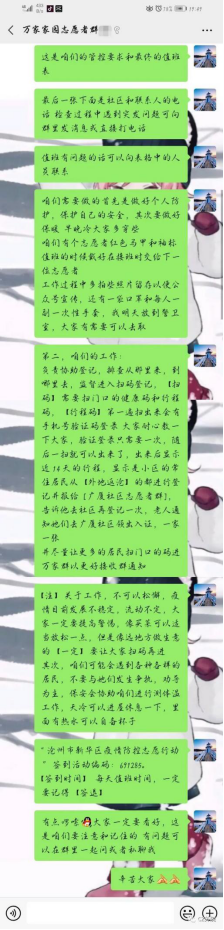 万家家园志愿者群
这是咱们的管控要求和最终的值班
表
最后一张下面是社区和联系人的电
话 检查过程中遇到突发问题可向
群里发消息或直接打电话
值班有问题的话可以向表格中的人
员联系
咱们需要做的首先是做好个人防
护，保护自己的安全，其次要做好
保暖 早晚冷大家多穿
咱们有个志愿者红色马甲和袖标
值班的时候戴好在接班时交给下一
位志愿者
工作过程中多拍些照片留存以便公
众号宣传，还有一袋口罩和每人一
副一次性手套，我明天放到警卫
室，大家有需要可以去取
第二，咱们的工作:
负责协助登记，排查从那里来，到
哪里去，监督进入扫码登记，【扫
码】需要扫门口的健康码和行程
码，【行程码】第一遍扫出来会有
手机号验证码登录 大家耐心教一
下大家，验证登录只需要一次，随
后一扫就可以出来了，出来后显示
近14天的行程，显示是小区的常
住居民从【外地返沧】的都进行登
记并报给【广厦社区志愿者群】，
告诉他去社区再登记一次，老人通
知她们去广厦社区领出入证，一家
一张
并尽量让更多的居民扫门口的码进
万家群以更好接收群通知
【注】关于工作，不可以松懈，疫
情目前发展不稳定，流动不定，大
家一定要提高警惕，像买菜可以适
当放松一点，但是像远地方做生意
的【一定】要让大家扫码再进
其次，咱们可能会遇到各种各群的
居民，不要与她们发生争执，劝导
为主，保安会协助咱们进行测体温
工作，天冷可以进屋休息一下，里
面有热水可以自备杯子
"沧州市新华区疫情防控志愿行动
" 签到活动编码: 691285。
【签到时间】 每天值班时间，一定
要记得【签退】
有点啰嗦 大家一定要看好，这
是咱们要注意和记住的 有问题可
以在群里一起问或者私聊我
辛苦大家